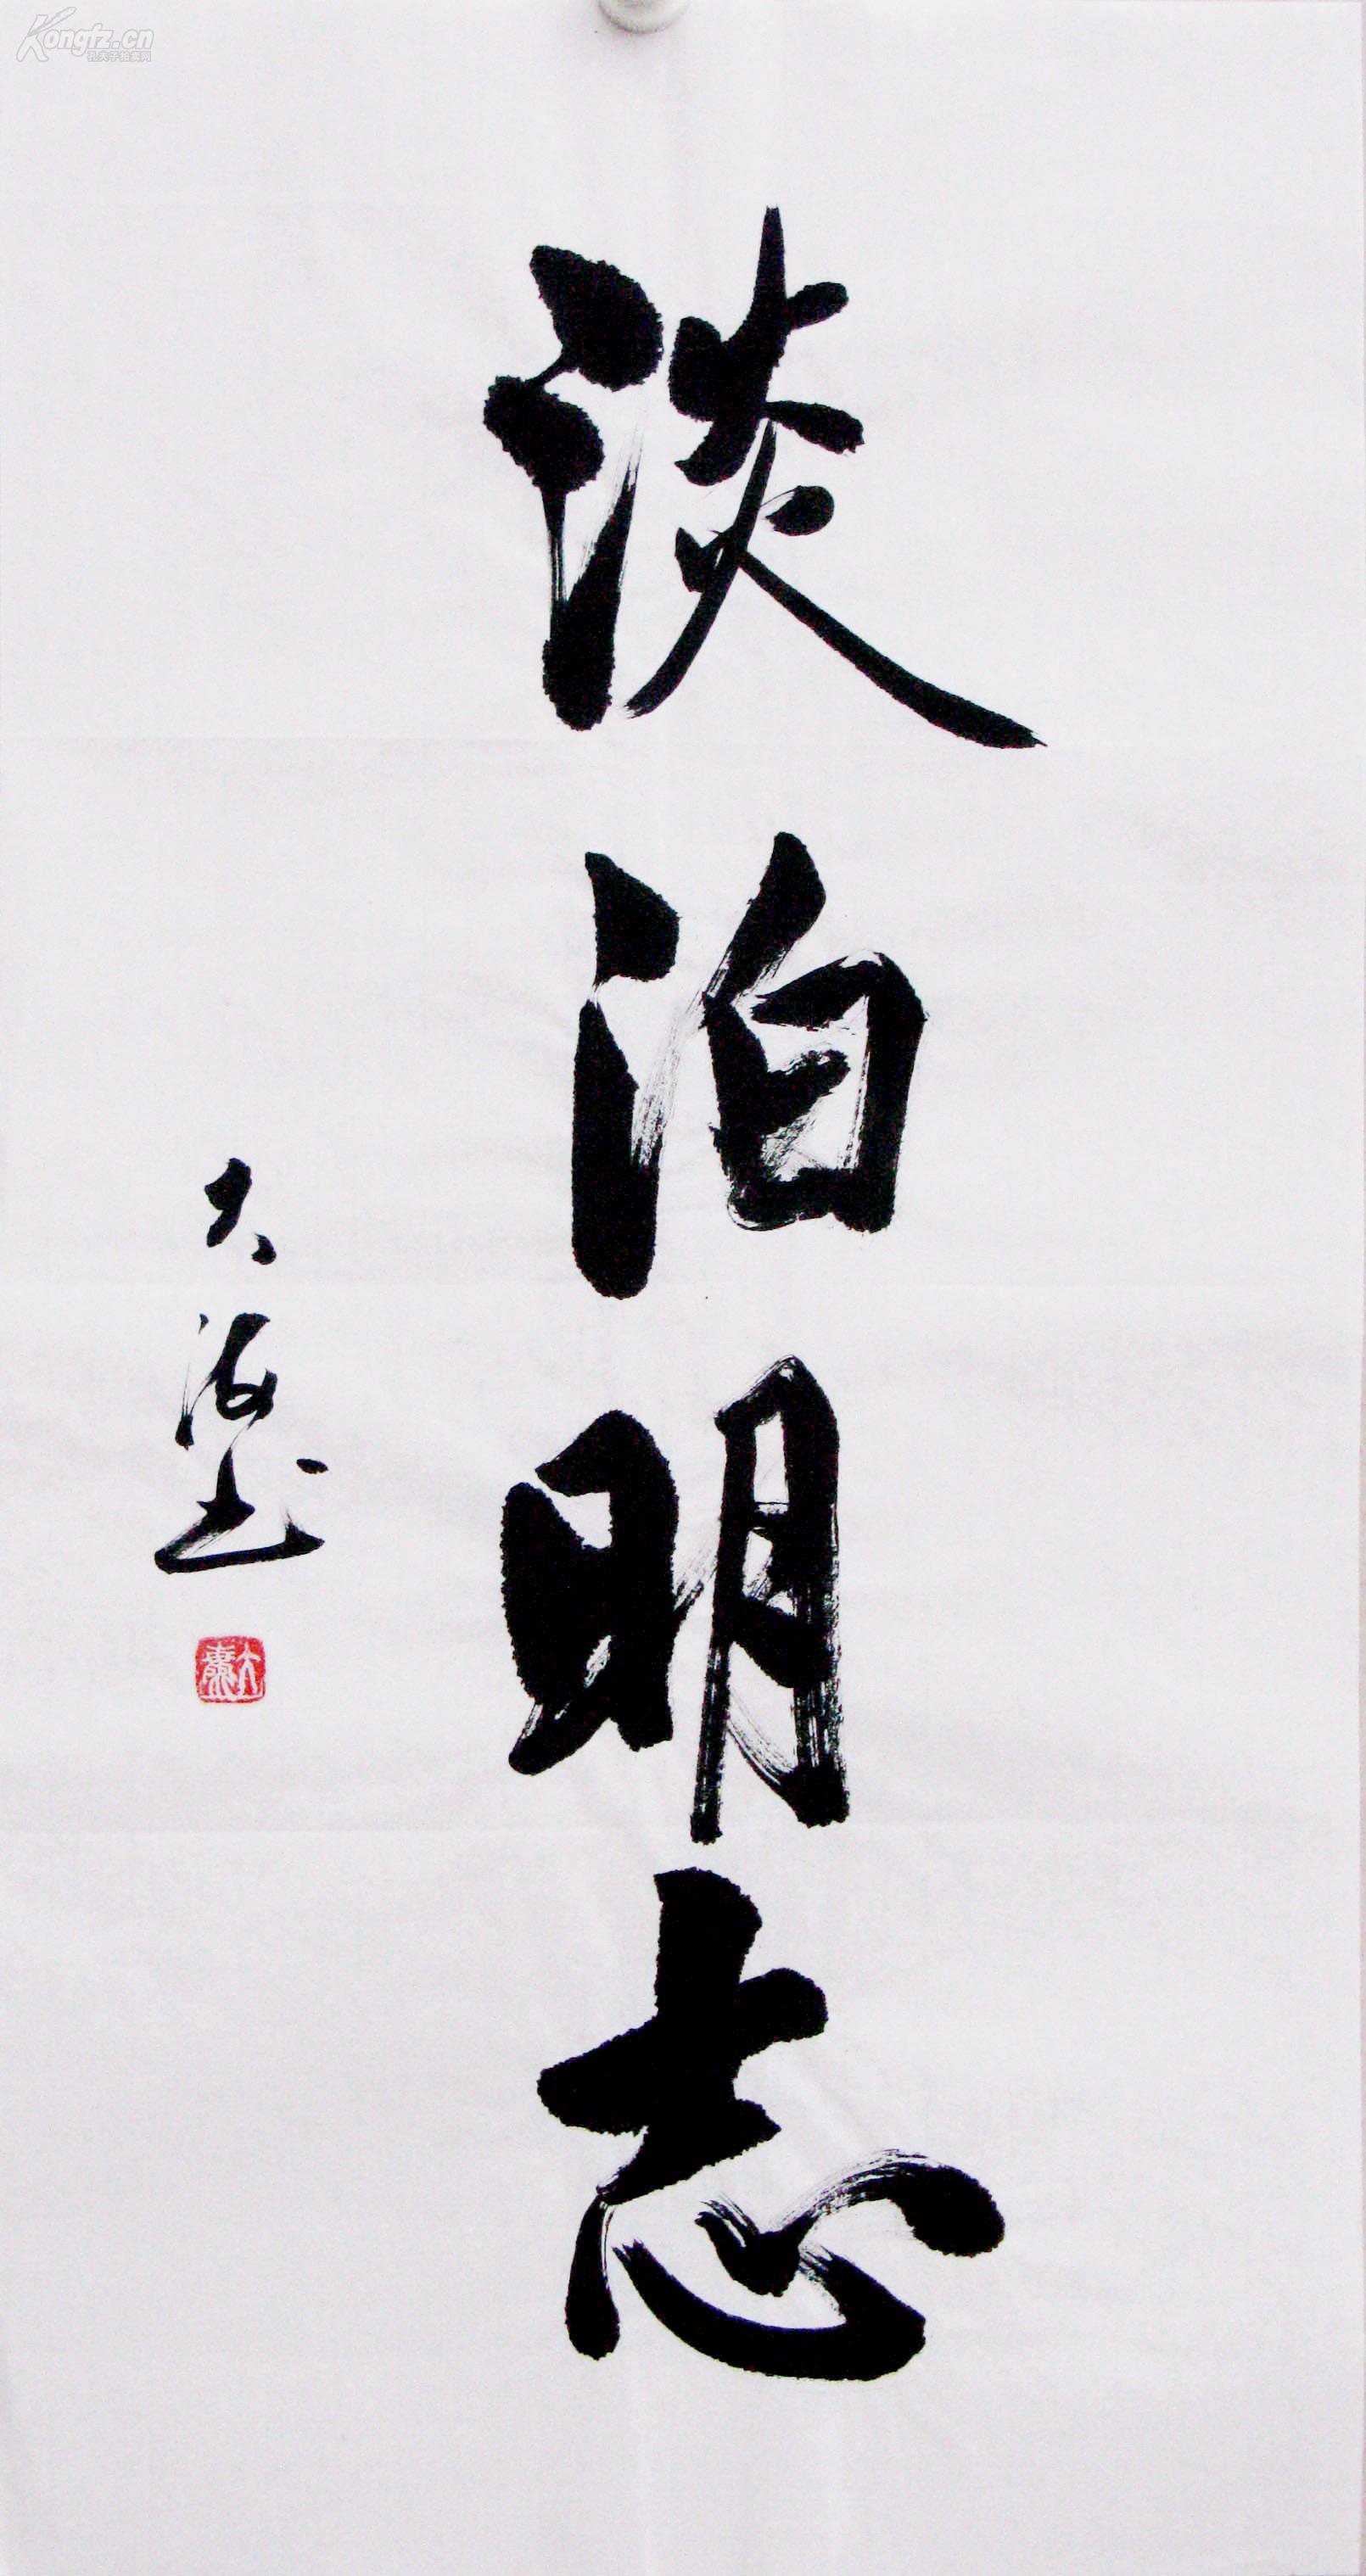 淡泊明志
大海书
Kongfz.cn
孔夫子拍卖网